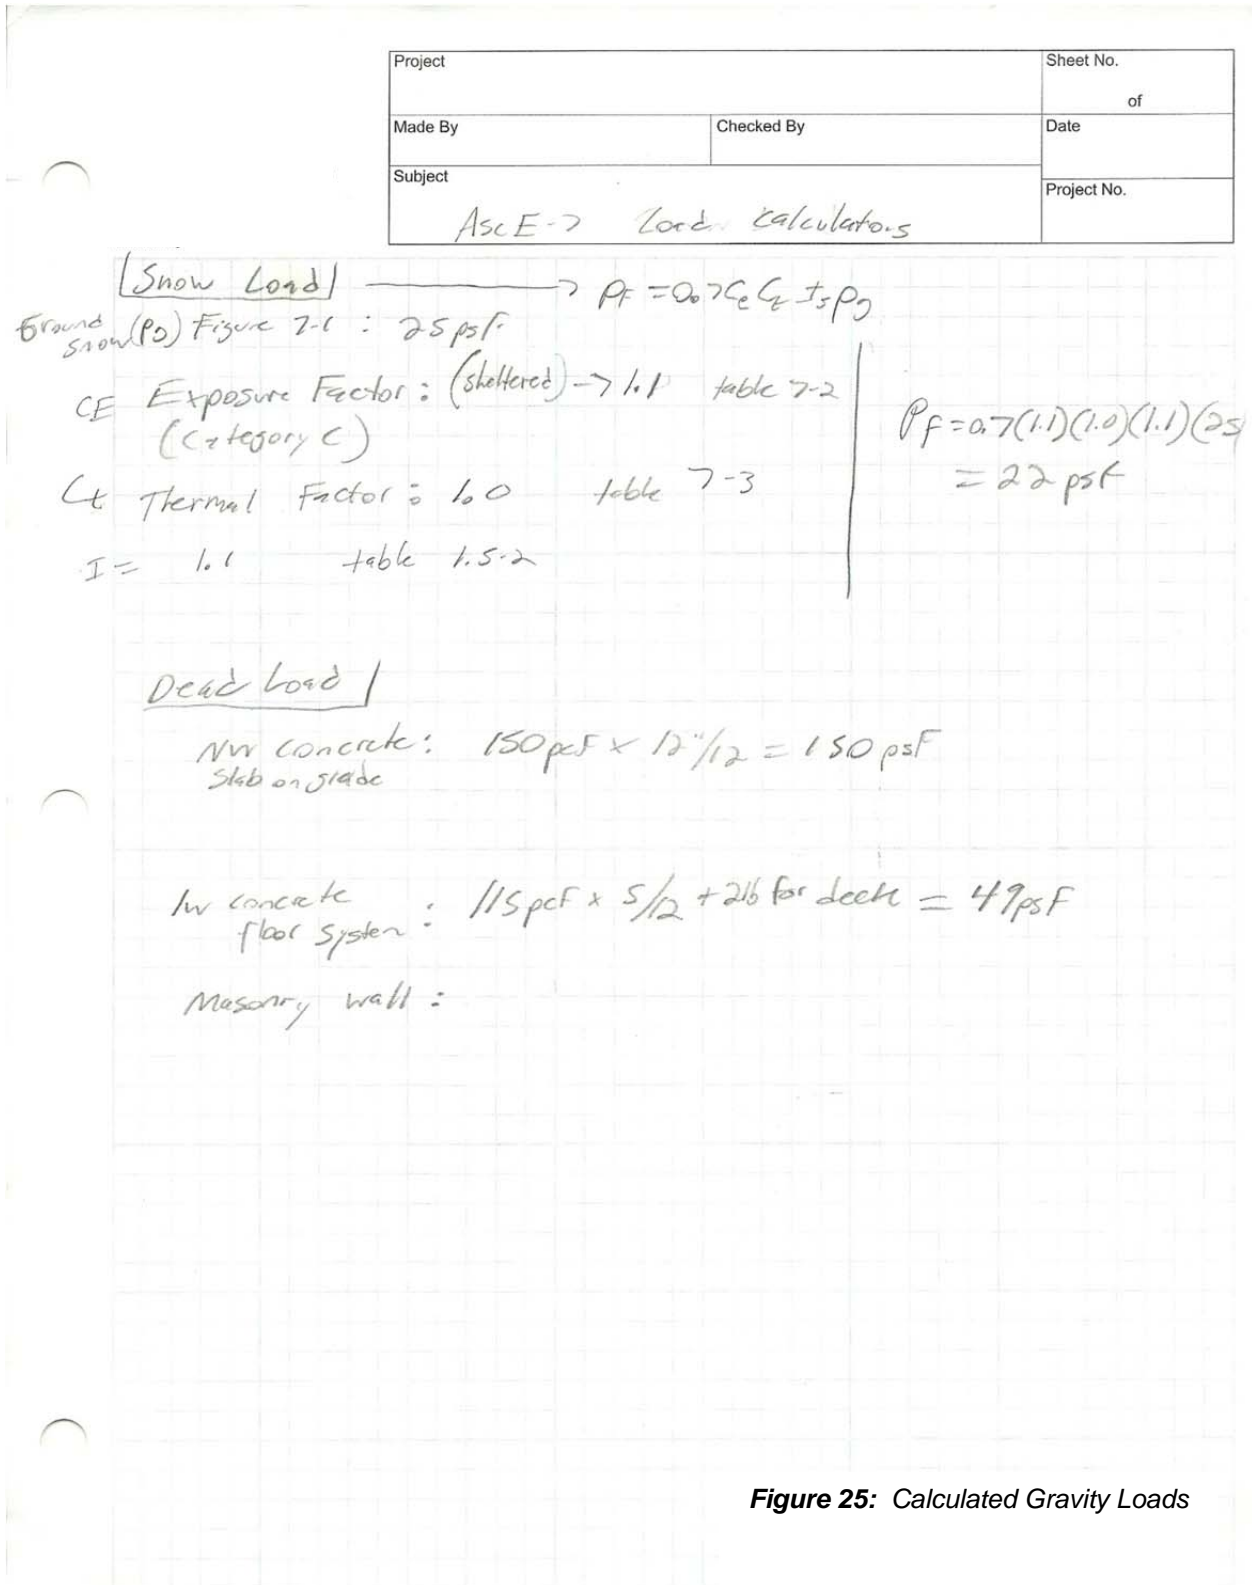 Project
Sheet No.
of
Made By
Checked By
Date
Subject
Project No.
AscE-7 Load calculators
Snow Load → PF = 0.7 Ce Ct Is Pg
Ground Snow (Pg) Figure 7-1 : 25 psf
CE Exposure Factor : (sheltered) → 1.1 table 7-2
(Category C)
Ct Thermal Factor : 1.0 table 7-3
I = 1.1 table 1.5-2
PF = 0.7(1.1)(1.0)(1.1)(25
= 22 psf
Dead Load
NW concrete : 150 pcf x 12"/12 = 150 psF
Slab on grade
lw concrete : 115 pcf x 5/12 + 2lb for deck = 49 psF
floor system
Masonry wall :
Figure 25: Calculated Gravity Loads